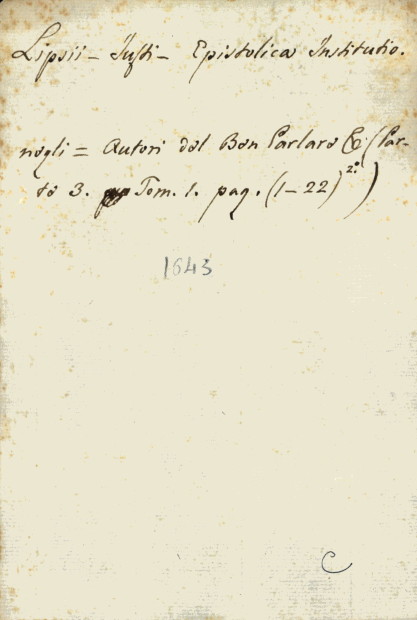 Lipsii - Justi - Epistolica Institutio.
negli = Autori del Ben Parlare &c (Par-
te 3. Tom. 1. pag. (1-22)2.°)
1643
C